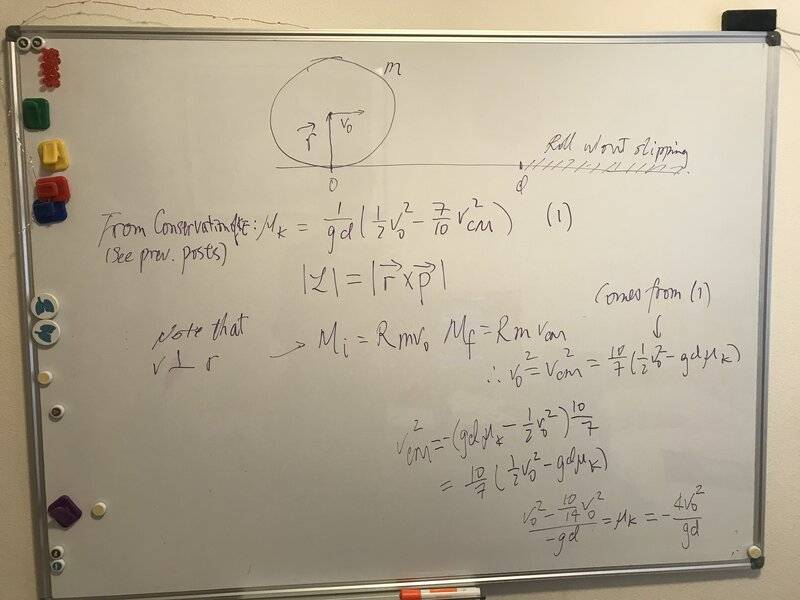 m
v₀
r⃗
Roll w/out slipping
O
d
From Conservation of E: μₖ = 1/gd (1/2 v₀² − 7/10 v²cm) (1)
(See prev. posts)
|L| = |r⃗ × p⃗|
Comes from (1)
Note that
v ⊥ r
→ Mᵢ = Rmv₀ M_f = Rmvcm
∴ v₀² = v²cm = 10/7 (1/2 v₀² − gdμₖ)
v²cm = −(gdμₖ − 1/2 v₀²) 10/7
= 10/7 (1/2 v₀² − gdμₖ)
(v₀² − 10/14 v₀²)/−gd = μₖ = −4v₀²/gd